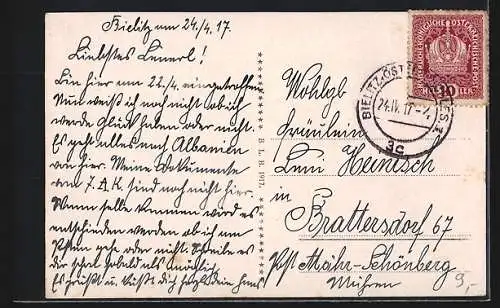 Bielitz am 24./4. 17
Liebstes Lenerl!
Bin hier am 22./4. eingetroffen
Nun weiß ich noch nicht ob ich
werde Glück haben oder nicht.
Es geht alles nach Albanien
von hier. Meine Dokumente
vom 7. A.K. sind noch nicht hier.
Wenn selbe kommen wird es
entschieden werden ob ich am
gehe oder nicht. Schreibe es
dir sobald als möglich
Es grüßt u. küßt dich Hans
B. L. B. 1917.
KAISERLICHE KÖNIGLICHE ÖSTERREICHISCHE POST
10 HELLER 10
BIELITZ-ÖST.
24.IV.17
3c
Wohlgb
Fräulein
Leni Heinisch
in
Brattersdorf 67
Post Mähr-Schönberg
Mähren
9,-